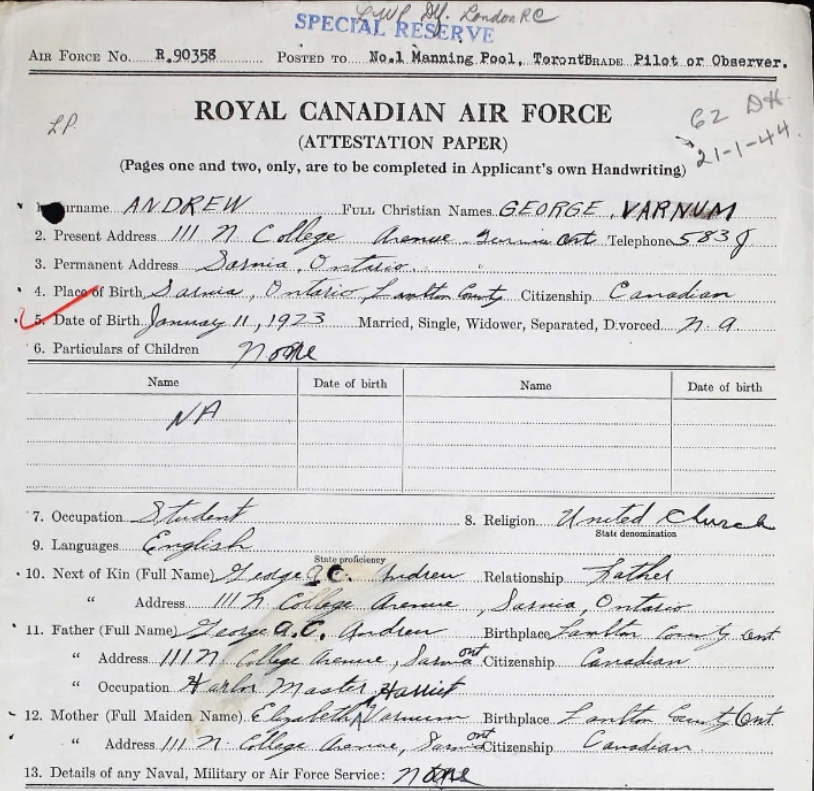 LWP Dy. London RC
SPECIAL RESERVE
AIR FORCE NO. R.90358 POSTED TO No.1 Manning Pool, Toront TRADE Pilot or Observer.
ROYAL CANADIAN AIR FORCE
62 DH.
LP.
(ATTESTATION PAPER)
21-1-44.
(Pages one and two, only, are to be completed in Applicant's own Handwriting)
1. Surname ANDREW FULL Christian Names GEORGE VARNUM
2. Present Address 111 N College Avenue Sarnia Ont Telephone 583 J
3. Permanent Address Sarnia, Ontario.
4. Place of Birth Sarnia, Ontario, Lambton County Citizenship Canadian
5. Date of Birth January 11, 1923 Married, Single, Widower, Separated, Divorced n.a
6. Particulars of Children None
Name Date of birth Name Date of birth
NA
7. Occupation Student 8. Religion United Church
State denomination
9. Languages English
State proficiency
10. Next of Kin (Full Name) George C. Andrew Relationship Father
" Address 111 N College Avenue, Sarnia, Ontario
11. Father (Full Name) George A.C. Andrew Birthplace Lambton County Ont
" Address 111 N. College Avenue, Sarnia Ont Citizenship Canadian
" Occupation Harbor Master
12. Mother (Full Maiden Name) Elizabeth Varnum Birthplace Lambton County Ont
" Address 111 N. College Avenue, Sarnia Ont Citizenship Canadian.
13. Details of any Naval, Military or Air Force Service: none